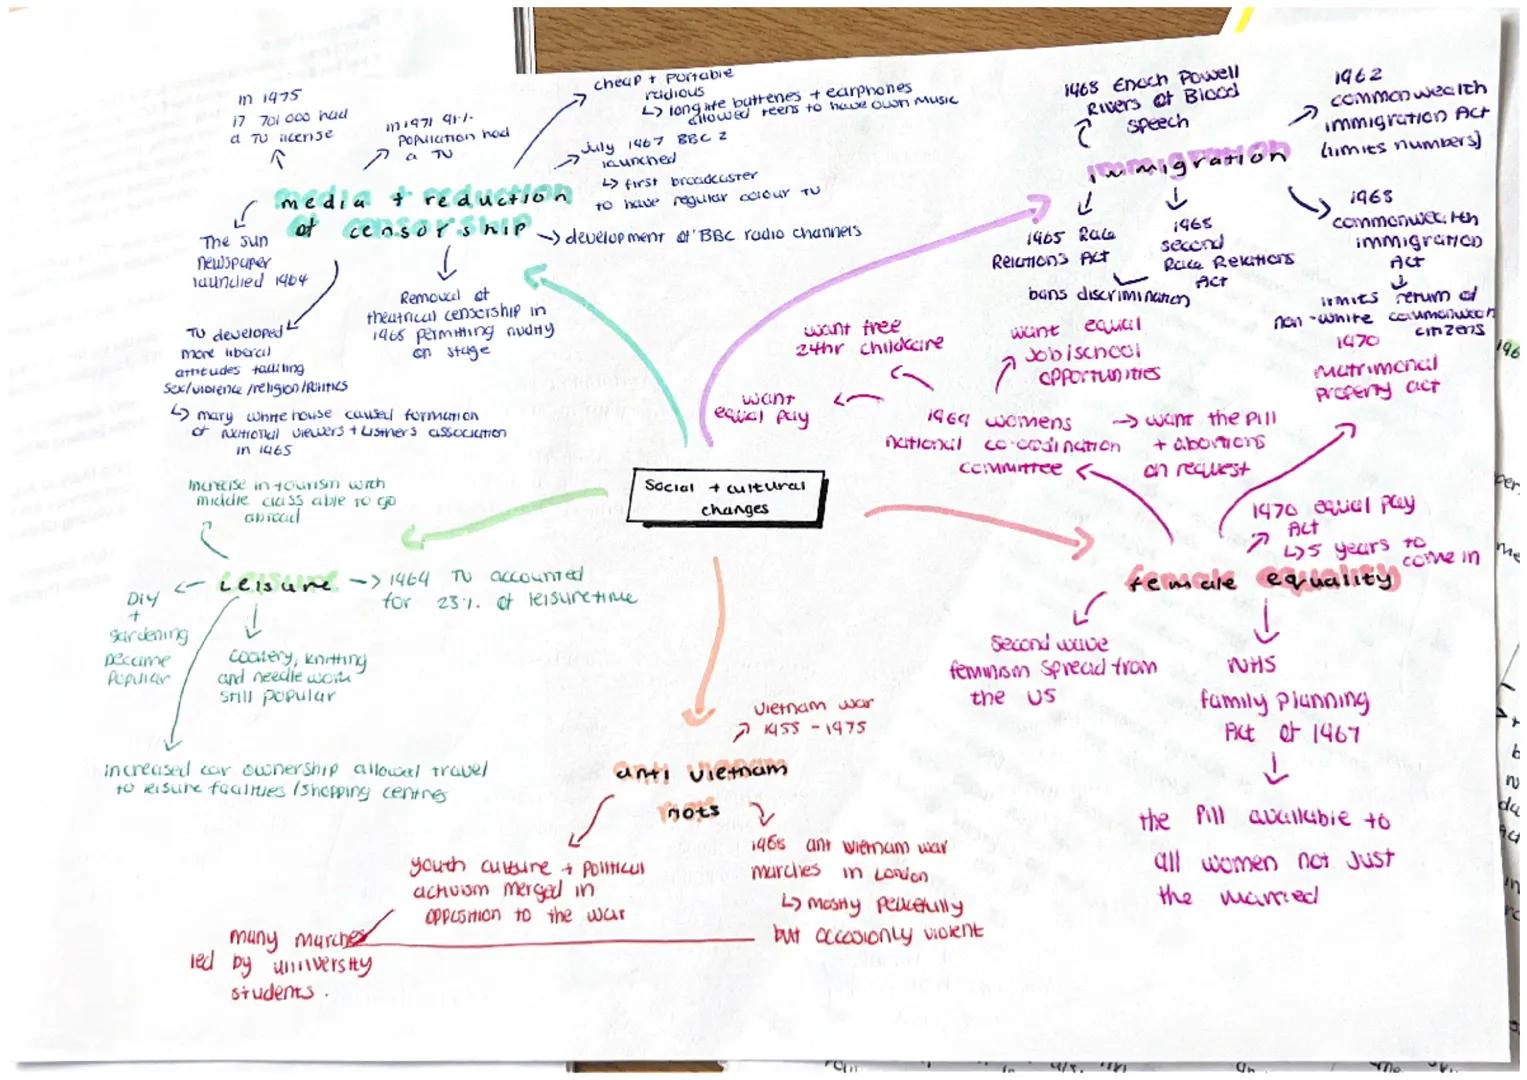 Social + cultural
changes
media + reduction
of censorship
in 1975
17 701 000 had
a TV license
in 1971 91%
population had
a TV
cheap + portable
radious
↳ long life batteries + earphones
allowed teens to have own music
July 1967 BBC 2
launched
↳ first broadcaster
to have regular colour TV
development of BBC radio channels
The Sun
newspaper
launched 1964
Removal of
theatrical censorship in
1968 permitting nudity
on stage
TV developed
more liberal
attitudes tackling
sex/violence/religion/politics
↳ mary whitehouse caused formation
of national viewers + listners association
in 1965
immigration
1968 Enoch Powell
Rivers of Blood
speech
1962
commonwealth
immigration Act
(limits numbers)
1965 Race
Relations Act
1968
second
Race Relations
Act
bans discrimination
1968
commonwealth
immigration
Act
limits return of
non-white commonwealth
citizens
female equality
want free
24hr childcare
want equal
job/school
opportunities
want
equal pay
1969 womens
national co-ordination
committee
want the pill
+ abortions
on request
1970
matrimonal
property act
1970 equal pay
Act
↳ 5 years to
come in
second wave
feminism spread from
the US
NHS
family planning
Act of 1967
the pill available to
all women not just
the married
Leisure
Increase in tourism with
middle class able to go
abroad
1969 TV accounted
for 23% of leisure time
DIY
+
gardening
became
popular
cookery, knitting
and needle work
still popular
increased car ownership allowed travel
to leisure facilities/shopping centres
anti vietnam
riots
Vietnam war
1955 - 1975
youth culture + political
activism merged in
opposition to the war
1968 ant vietnam war
marches in London
↳ mostly peacefully
but occasionly violent
many marches
led by university
students.